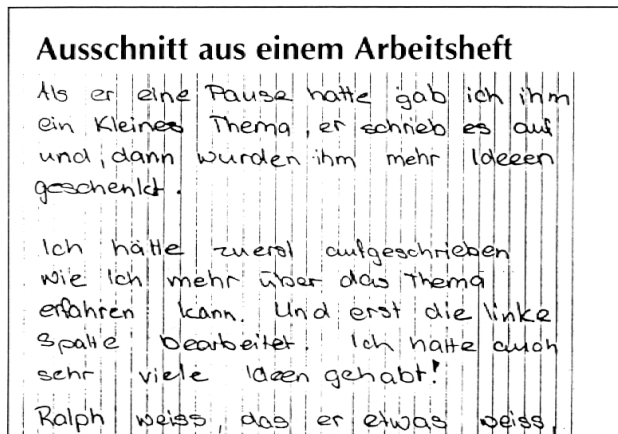 Ausschnitt aus einem Arbeitsheft
Als er eine Pause hatte gab ich ihm
ein kleines Thema, er schrieb es auf
und, dann wurden ihm mehr Ideeen
geschenkt.
Ich hätte zuerst aufgeschrieben
wie ich mehr über das Thema
erfahren kann. Und erst die linke
Spalte bearbeitet. Ich hätte auch
sehr viele Ideen gehabt!
Ralph weiss, das er etwas weiss,